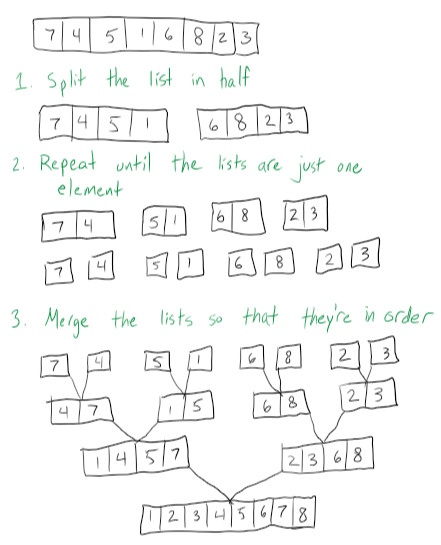 7 4 5 1 6 8 2 3
1. Split the list in half
7 4 5 1 6 8 2 3
2. Repeat until the lists are just one
element
7 4 5 1 6 8 2 3
7 4 5 1 6 8 2 3
3. Merge the lists so that they're in order
7 4 5 1 6 8 2 3
4 7 1 5 6 8 2 3
1 4 5 7 2 3 6 8
1 2 3 4 5 6 7 8